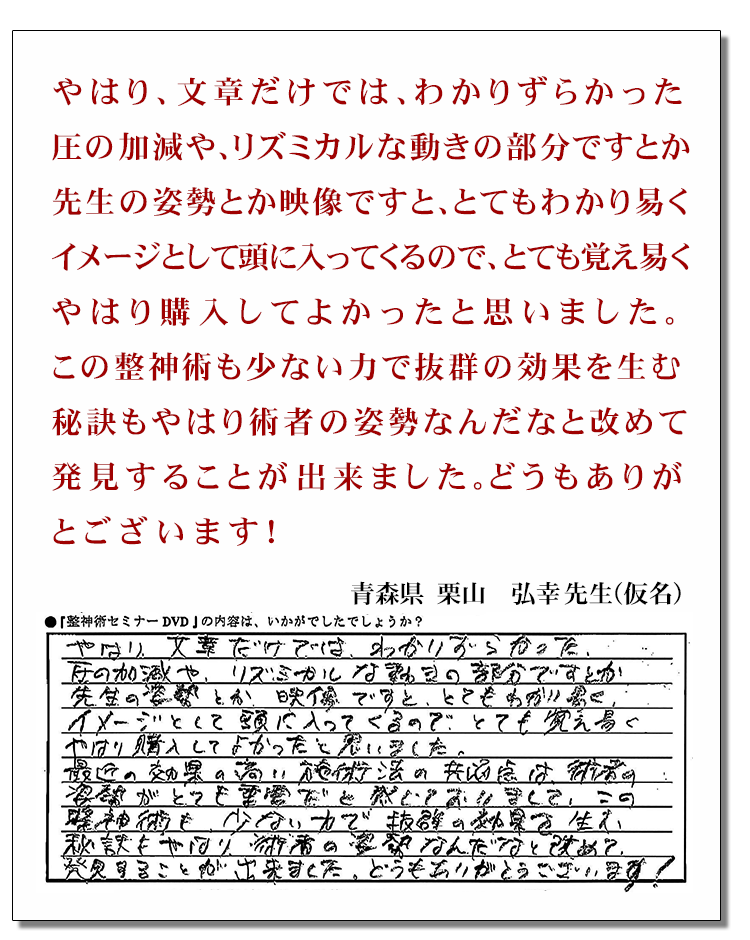 やはり、文章だけでは、わかりずらかった
圧の加減や、リズミカルな動きの部分ですとか
先生の姿勢とか映像ですと、とてもわかり易く
イメージとして頭に入ってくるので、とても覚え易く
やはり購入してよかったと思いました。
この整神術も少ない力で抜群の効果を生む
秘訣もやはり術者の姿勢なんだなと改めて
発見することが出来ました。どうもありが
とございます!
青森県 栗山 弘幸先生(仮名)
●『整神術セミナーDVD』の内容は、いかがでしたでしょうか?
やはり、文章だけでは、わかりずらかった、
圧の加減や、リズミカルな動きの部分ですとか
先生の姿勢とか、映像ですと、とてもわかり易く、
イメージとして頭に入ってくるので、とても覚え易く
やはり購入してよかったと思いました。
最近の効果の高い施術法の共通点は、術者の
姿勢がとても重要だと感じておりまして、この
整神術も、少ない力で抜群の効果を生む、
秘訣もやはり、術者の姿勢なんだなと改めて、
発見することが出来ました。どうもありがとうございます!